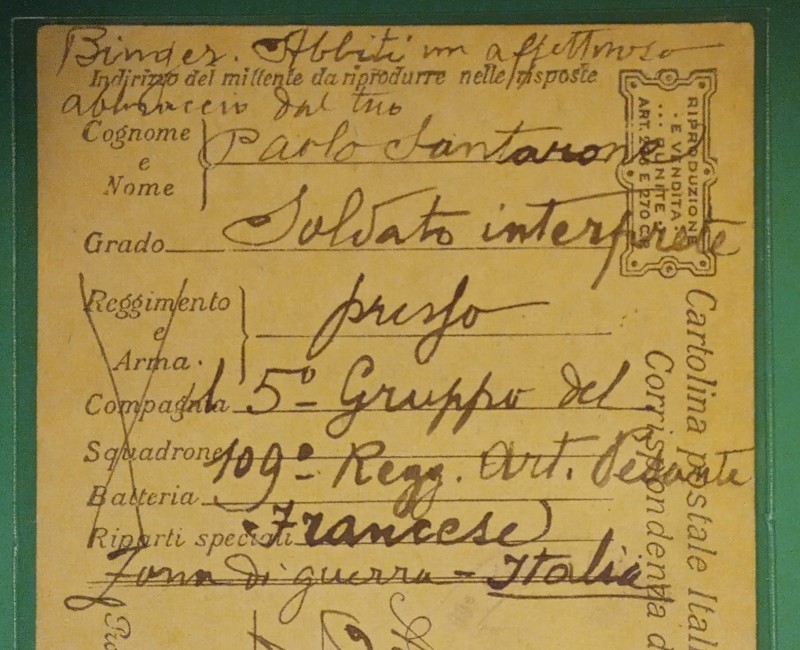 Binder. Abbiti un affettuoso
Indirizzo del mittente da riprodurre nelle risposte
abbraccio dal tuo
Cognome
e
Nome
Paolo Santarone
Grado
Soldato interprete
Reggimento
e
Arma.
presso
Compagnia
il 5º Gruppo del
Squadrone
109º Regg. Art. Pesante
Batteria
Riparti speciali
Francese
Zona di guerra - Italia
RIPRODUZIONE
E VENDITA
ART. E 270 C.P.
Cartolina postale Ital
Corrispondenza d